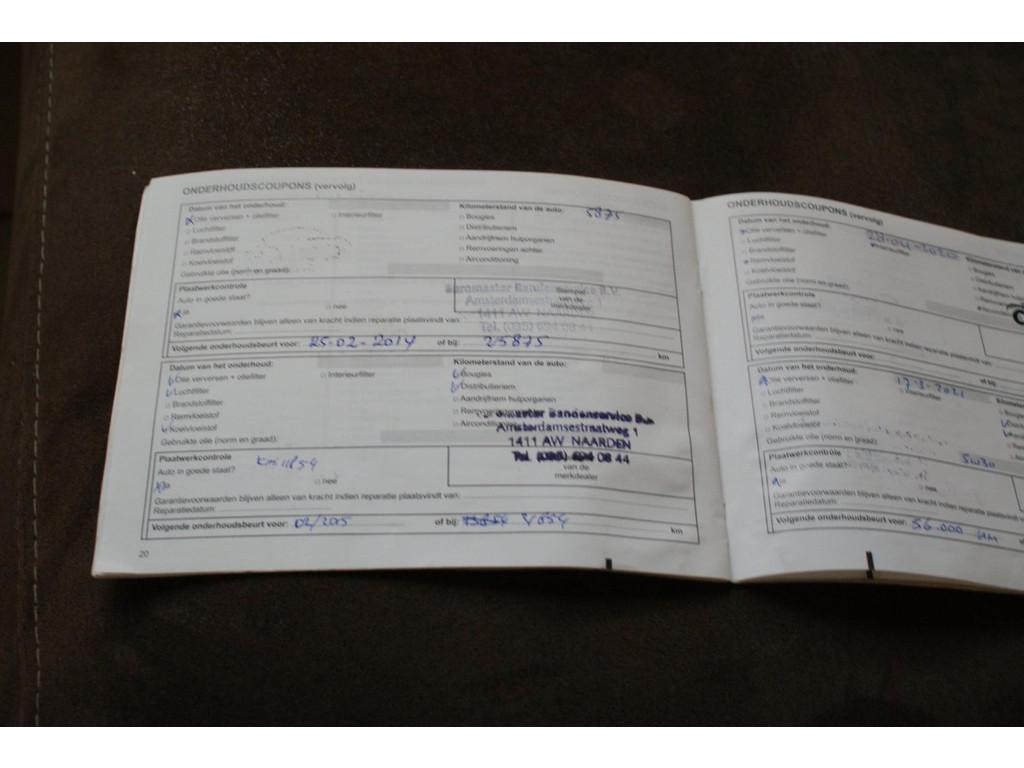 ONDERHOUDSCOUPONS (vervolg)
Datum van het onderhoud:
Kilometerstand van de auto: 5875
Olie verversen + oliefilter
Interieurfilter
Bougies
Luchtfilter
Distributieriem
Brandstoffilter
Aandrijfriem hulporganen
Remvloeistof
Remvoeringen achter
Koelvloeistof
Airconditioning
Gebruikte olie (norm en graad):
Plaatwerkcontrole
Auto in goede staat?
ja
nee
Euromaster Bandenservice B.V.
Amsterdamsestraatweg 1
1411 AW NAARDEN
Tel. (035) 694 08 44
Stempel van de merkdealer
Garantievoorwaarden blijven alleen van kracht indien reparatie plaatsvindt van:
Reparatiedatum:
Volgende onderhoudsbeurt voor: 25-02-2014 of bij: 25875 km
Datum van het onderhoud:
Kilometerstand van de auto:
Olie verversen + oliefilter
Interieurfilter
Bougies
Luchtfilter
Distributieriem
Brandstoffilter
Aandrijfriem hulporganen
Remvloeistof
Koelvloeistof
Gebruikte olie (norm en graad):
Plaatwerkcontrole
Auto in goede staat?
ja
nee
Bandenservice
Amsterdamsestraatweg 1
1411 AW NAARDEN
Tel. (035) 694 08 44
van de
merkdealer
Garantievoorwaarden blijven alleen van kracht indien reparatie plaatsvindt van:
Reparatiedatum:
Volgende onderhoudsbeurt voor: 02/2015 of bij: km
20
ONDERHOUDSCOUPONS (vervolg)
Datum van het onderhoud: 28-04-2020
Olie verversen + oliefilter
Interieurfilter
Bougies
Luchtfilter
Brandstoffilter
Remvloeistof
Koelvloeistof
Gebruikte olie (norm en graad):
Plaatwerkcontrole
Auto in goede staat?
ja
nee
Garantievoorwaarden blijven alleen van kracht indien reparatie plaatsvindt van:
Reparatiedatum:
Volgende onderhoudsbeurt voor:
of bij:
Datum van het onderhoud: 17-3-2021
Olie verversen + oliefilter
Interieurfilter
Luchtfilter
Brandstoffilter
Remvloeistof
Koelvloeistof
Gebruikte olie (norm en graad): 5W30
Plaatwerkcontrole
Auto in goede staat?
ja
nee
Garantievoorwaarden blijven alleen van kracht indien
Reparatiedatum:
Volgende onderhoudsbeurt voor: 56.000 km